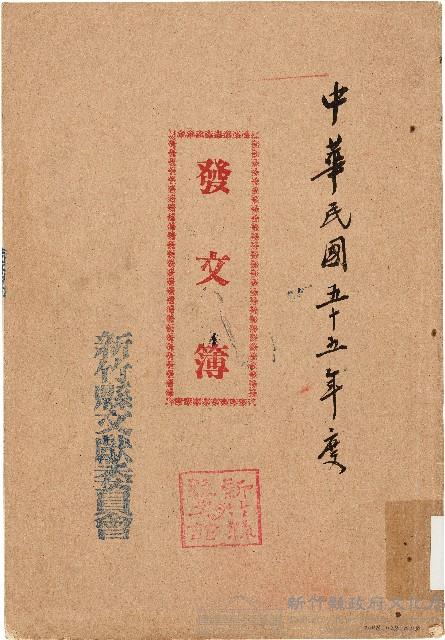 中華民國五十五年度
發文簿
新竹縣文獻委員會
新竹縣政府文化局